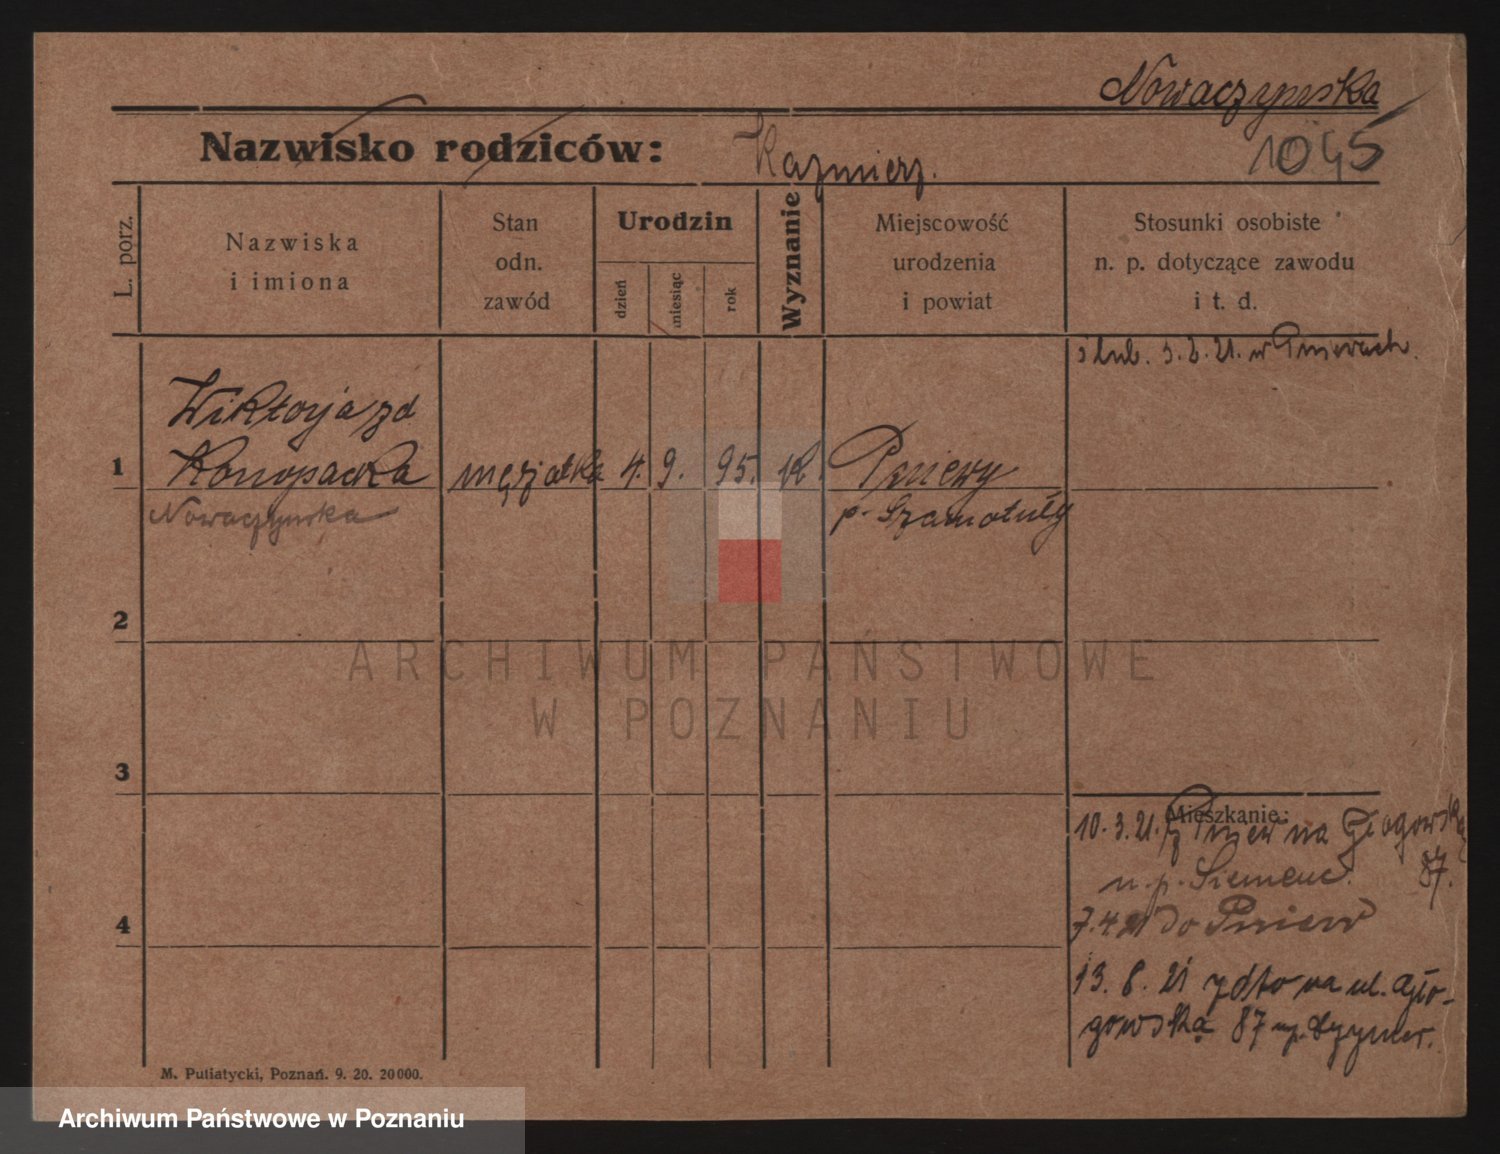 Nowaczyńska
Nazwisko rodziców: Kazmierz. 1045
L. porz.
Nazwiska
i imiona
Stan
odn.
zawód
Urodzin
dzień
miesiąc
rok
Wyznanie
Miejscowość
urodzenia
i powiat
Stosunki osobiste
n. p. dotyczące zawodu
i t. d.
ślub. 3. 2. 21. w Pniewach.
Wiktorja zd
1 Konopacka mężatka 4. 9. 95. rk. Pniewy
Nowaczyńska p. Szamotuły
2
3
4
Mieszkanie:
10. 3. 21. z Pniew na Głogowską
u. p. Siemens. 87.
7. 4. 21 do Pniew
13. 8. 21 z dto na ul. Gło-
gowską 87
M. Putiatycki, Poznań. 9. 20. 20000.
ARCHIWUM PAŃSTWOWE
W POZNANIU
Archiwum Państwowe w Poznaniu